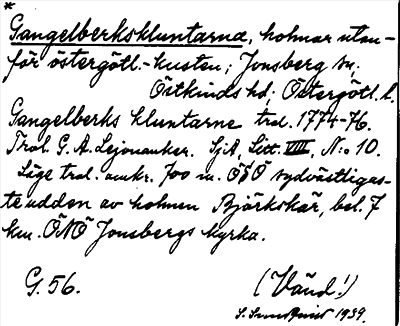 *
Gangelberkskluntarna, holmar utan-
för östergötl.-kusten; Jonsberg sn;
Östkinds hd; Östergötl. l.
Gangelberks kluntarne trol. 1774-76.
Trol. G. A. Lejonanker. SjA, Litt. VIII, N:o 10.
Läge trol. omkr. 700 m. ÖSÖ sydvästligas-
te udden av holmen Björkskär, bel. 7
km. ÖNÖ Jonsbergs kyrka.
G. 56.
(Vänd!)
S. Sundqvist 1939.